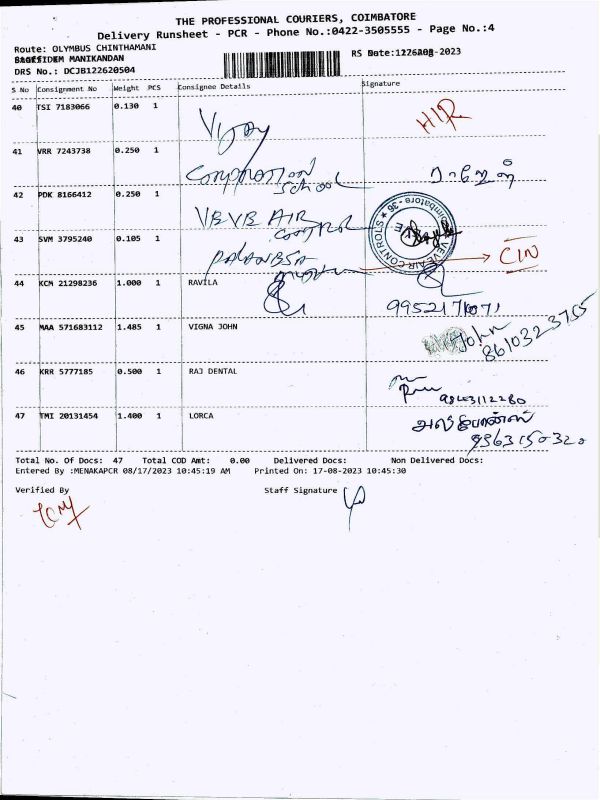 THE PROFESSIONAL COURIERS, COIMBATORE
Delivery Runsheet - PCR - Phone No.:0422-3505555 - Page No.:4
Route: OLYMBUS CHINTHAMANI
MANIKANDAN
RS -2023
DRS No.: DCJB122620504
S No Consignment No Weight PCS Consignee Details Signature
40 TSI 7183066 0.130 1 Vijay HLR
41 VRR 7243738 0.250 1 Corporation School
42 PDK 8166412 0.250 1 VEVE AIR Control
VEVE AIR CONTROLS ★ Coimbatore - 36
43 SVM 3795240 0.105 1 CIN
44 KCM 21298236 1.000 1 RAVILA
45 MAA 571683112 1.485 1 VIGNA JOHN John 8610323755
46 KRR 5777185 0.500 1 RAJ DENTAL 9843112280
47 TMI 20131454 1.400 1 LORCA
Total No. Of Docs: 47 Total COD Amt: 0.00 Delivered Docs: Non Delivered Docs:
Entered By :MENAKAPCR 08/17/2023 10:45:19 AM Printed On: 17-08-2023 10:45:30
Verified By Staff Signature